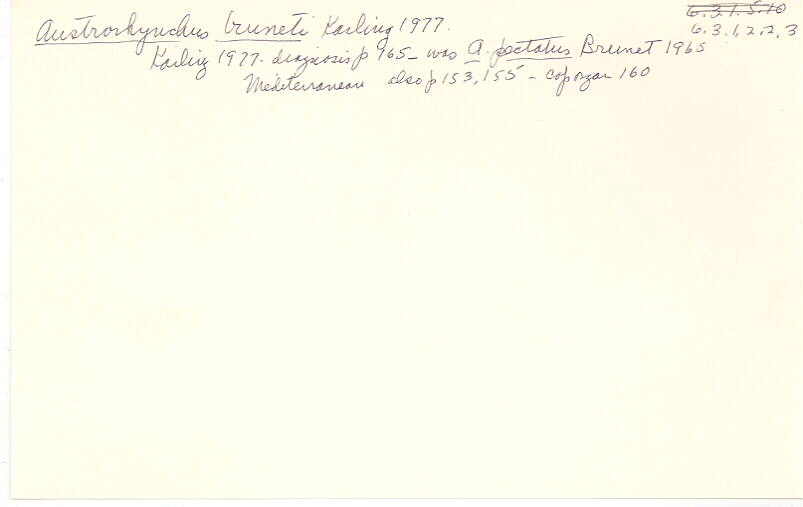 Austrorhynchus bruneti Karling 1977.
6.3.1.5.10
6.3.1.2.2.3
Karling 1977. diagnosis p 165 – was A. pectatus Brunet 1965
Mediterranean also p 153, 155 – cop organ 160